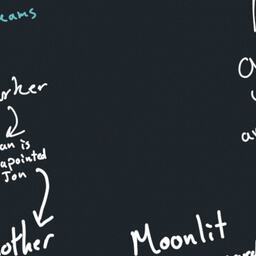 eams
rker
an is
apointed
Jon
other
Moonlit